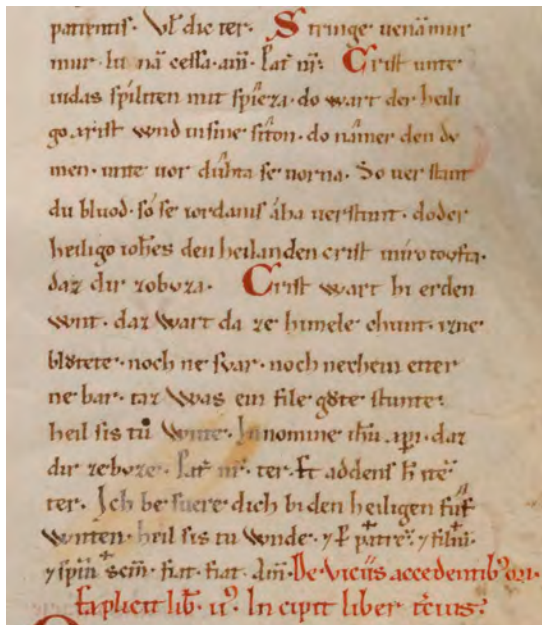 patientis. Vl dic ter. Stringe uenā mur
mur. hi nā cessa. am̄. Pat̄ nr̄. Crist unte
iudas spiliten mit spieza. do wart der heili
go xrist wnd in sine siton. do nāmer den du
men. unte uor duhta se uorna. So uer stant
du bluod. só se iordanis áha uerstunt. do der
heiligo ioh̄es den heilanden crist in iro toufta.
daz dir zobuza. Crist wart hi erden
wnt. daz wart da ze himele chunt. izne
blotete. noch ne svar. noch nechein eiter
ne bar. taz was ein file gote stunte.
heil sis tu wnte. In nomine ih̄u xp̄i. daz
dir ze buze. Pat̄ nr̄. ter. Et addens h̄ itē
ter. Ich besuere dich bi den heiligen fūf
wnten. heil sis tu wnde. ⁊ P̄ patrē. ⁊ filiū.
⁊ sp̄m sc̄m. fiat. fiat. am̄. De viciis accedentib⁹
Explicit lib̄. ii⁹. Incipit liber t̄cius.